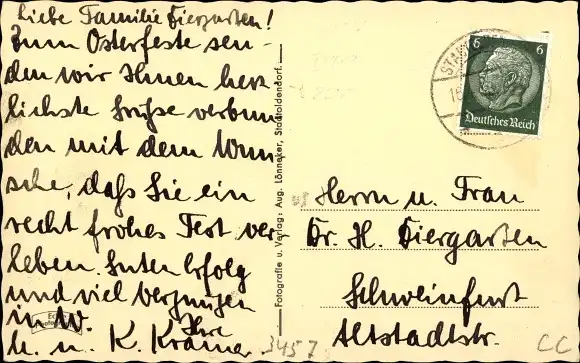 Liebe Familie Eiergarten!
Zum Osterfeste sen-
den wir Ihnen herz
lichste Grüße verbun
den mit dem Wun
sche, daß Sie ein
recht frohes Fest ver
leben. Guten Erfolg
und viel Vergnügen
in W. Ihre
H. u. K. Krämer.
Fotografie u. Verlag: Aug. Lönneker, Stadtoldendorf.
6 6
Deutsches Reich
Herrn u. Frau
Dr. H. Eiergarten
Schweinfurt
Altstadtstr.
3457
CC